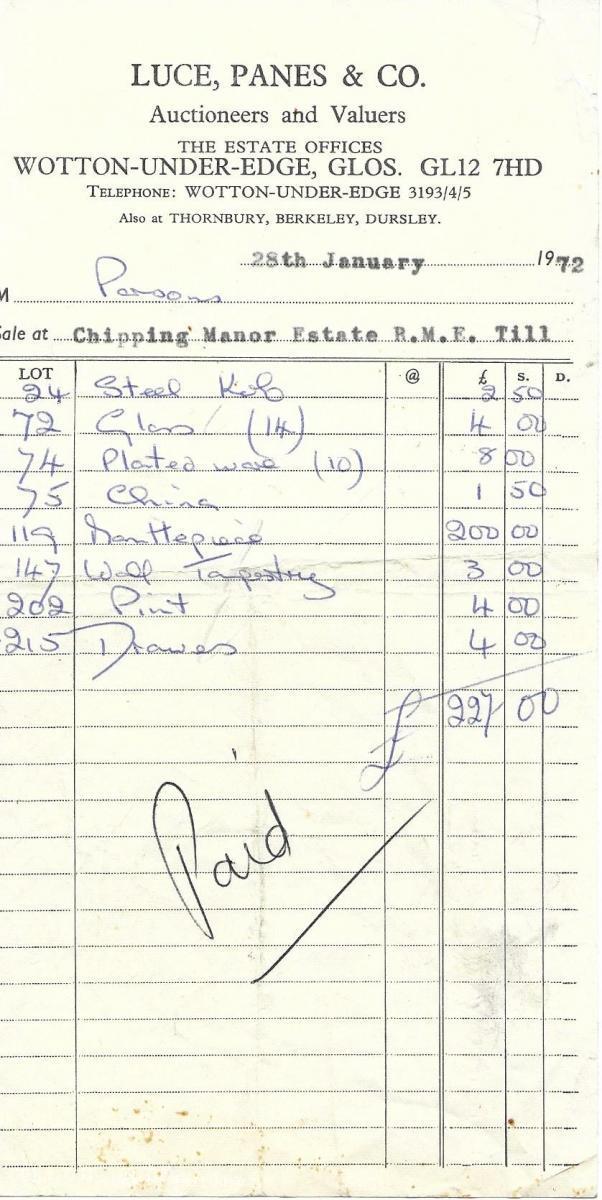 LUCE, PANES & CO.
Auctioneers and Valuers
THE ESTATE OFFICES
WOTTON-UNDER-EDGE, GLOS. GL12 7HD
TELEPHONE: WOTTON-UNDER-EDGE 3193/4/5
Also at THORNBURY, BERKELEY, DURSLEY.
28th January 1972
M Parsons
Sale at Chipping Manor Estate R.M.E. Till
LOT @ £ s. D.
24 Steel 2 50
72 Glass (14) 4 00
74 Plated ware (10) 8 00
75 China 1 50
119 Manttepiece 200 00
147 Wall Tapestry 3 00
202 Print 4 00
215 Drawers 4 00
£ 227 00
Paid